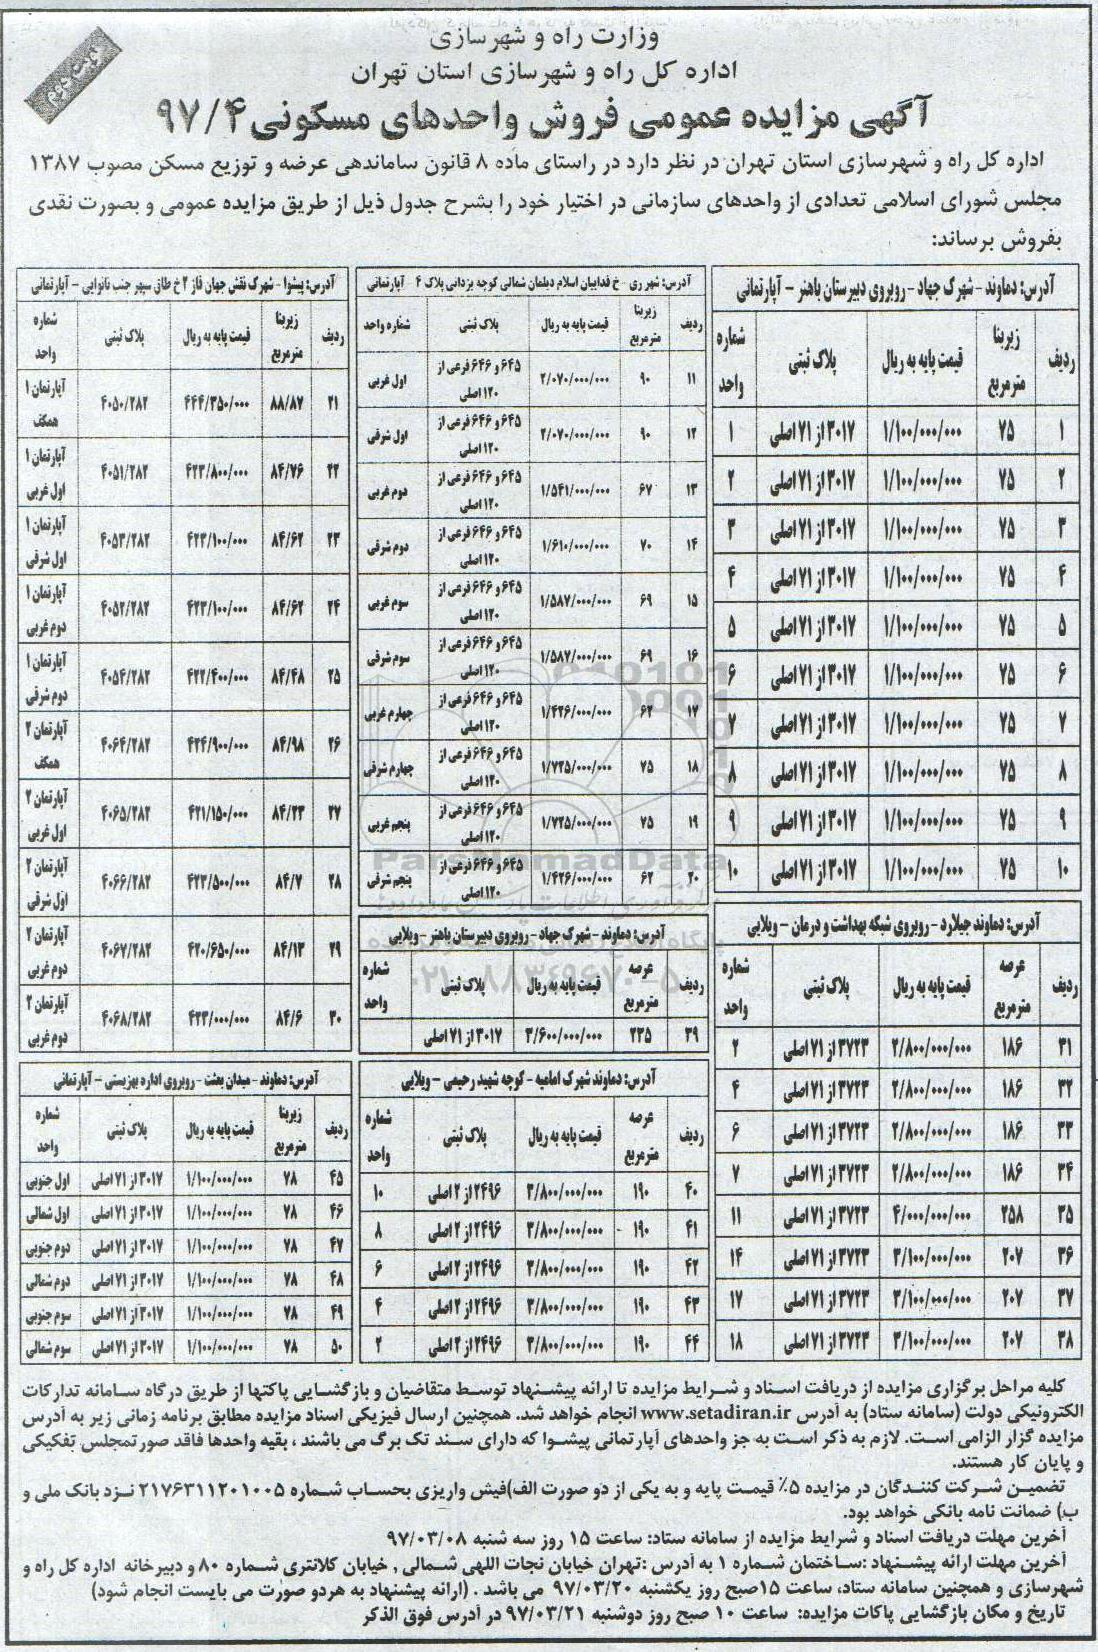 وزارت راه و شهرسازی
اداره کل راه و شهرسازی استان تهران
نوبت دوم
آگهی مزایده عمومی فروش واحدهای مسکونی ۹۷/۴
اداره کل راه و شهرسازی استان تهران در نظر دارد در راستای ماده ۸ قانون ساماندهی عرضه و توزیع مسکن مصوب ۱۳۸۷
مجلس شورای اسلامی تعدادی از واحدهای سازمانی در اختیار خود را بشرح جدول ذیل از طریق مزایده عمومی و بصورت نقدی
بفروش برساند:
آدرس: دماوند - شهرک جهاد - روبروی دبیرستان باهنر - آپارتمانی
ردیف | زیربنا مترمربع | قیمت پایه به ریال | پلاک ثبتی | شماره واحد
۱ | ۷۵ | ۱/۱۰۰/۰۰۰/۰۰۰ | ۳۰۱۷ از ۷۱ اصلی | ۱
۲ | ۷۵ | ۱/۱۰۰/۰۰۰/۰۰۰ | ۳۰۱۷ از ۷۱ اصلی | ۲
۳ | ۷۵ | ۱/۱۰۰/۰۰۰/۰۰۰ | ۳۰۱۷ از ۷۱ اصلی | ۳
۴ | ۷۵ | ۱/۱۰۰/۰۰۰/۰۰۰ | ۳۰۱۷ از ۷۱ اصلی | ۴
۵ | ۷۵ | ۱/۱۰۰/۰۰۰/۰۰۰ | ۳۰۱۷ از ۷۱ اصلی | ۵
۶ | ۷۵ | ۱/۱۰۰/۰۰۰/۰۰۰ | ۳۰۱۷ از ۷۱ اصلی | ۶
۷ | ۷۵ | ۱/۱۰۰/۰۰۰/۰۰۰ | ۳۰۱۷ از ۷۱ اصلی | ۷
۸ | ۷۵ | ۱/۱۰۰/۰۰۰/۰۰۰ | ۳۰۱۷ از ۷۱ اصلی | ۸
۹ | ۷۵ | ۱/۱۰۰/۰۰۰/۰۰۰ | ۳۰۱۷ از ۷۱ اصلی | ۹
۱۰ | ۷۵ | ۱/۱۰۰/۰۰۰/۰۰۰ | ۳۰۱۷ از ۷۱ اصلی | ۱۰
آدرس: شهر ری - خ فداییان اسلام دیلمان شمالی کوچه یزدانی پلاک ۴ - آپارتمانی
ردیف | زیربنا مترمربع | قیمت پایه به ریال | پلاک ثبتی | شماره واحد
۱۱ | ۹۰ | ۲/۰۷۰/۰۰۰/۰۰۰ | ۶۴۵ و ۶۴۶ فرعی از ۱۲۰ اصلی | اول غربی
۱۲ | ۹۰ | ۲/۰۷۰/۰۰۰/۰۰۰ | ۶۴۵ و ۶۴۶ فرعی از ۱۲۰ اصلی | اول شرقی
۱۳ | ۶۷ | ۱/۵۴۱/۰۰۰/۰۰۰ | ۶۴۵ و ۶۴۶ فرعی از ۱۲۰ اصلی | دوم غربی
۱۴ | ۷۰ | ۱/۶۱۰/۰۰۰/۰۰۰ | ۶۴۵ و ۶۴۶ فرعی از ۱۲۰ اصلی | دوم شرقی
۱۵ | ۶۹ | ۱/۵۸۷/۰۰۰/۰۰۰ | ۶۴۵ و ۶۴۶ فرعی از ۱۲۰ اصلی | سوم غربی
۱۶ | ۶۹ | ۱/۵۸۷/۰۰۰/۰۰۰ | ۶۴۵ و ۶۴۶ فرعی از ۱۲۰ اصلی | سوم شرقی
۱۷ | ۶۲ | ۱/۴۲۶/۰۰۰/۰۰۰ | ۶۴۵ و ۶۴۶ فرعی از ۱۲۰ اصلی | چهارم غربی
۱۸ | ۷۵ | ۱/۷۲۵/۰۰۰/۰۰۰ | ۶۴۵ و ۶۴۶ فرعی از ۱۲۰ اصلی | چهارم شرقی
۱۹ | ۷۵ | ۱/۷۲۵/۰۰۰/۰۰۰ | ۶۴۵ و ۶۴۶ فرعی از ۱۲۰ اصلی | پنجم غربی
۲۰ | ۶۲ | ۱/۴۲۶/۰۰۰/۰۰۰ | ۶۴۵ و ۶۴۶ فرعی از ۱۲۰ اصلی | پنجم شرقی
آدرس: پیشوا - شهرک نقش جهان فاز ۲ خ طاق سپهر جنب نانوایی - آپارتمانی
ردیف | زیربنا مترمربع | قیمت پایه به ریال | پلاک ثبتی | شماره واحد
۲۱ | ۸۸/۸۷ | ۴۴۴/۳۵۰/۰۰۰ | ۴۰۵۰/۲۸۲ | آپارتمان ۱ همکف
۲۲ | ۸۴/۷۶ | ۴۲۳/۸۰۰/۰۰۰ | ۴۰۵۱/۲۸۲ | آپارتمان ۱ اول غربی
۲۳ | ۸۴/۶۲ | ۴۲۳/۱۰۰/۰۰۰ | ۴۰۵۳/۲۸۲ | آپارتمان ۱ اول شرقی
۲۴ | ۸۴/۶۲ | ۴۲۳/۱۰۰/۰۰۰ | ۴۰۵۲/۲۸۲ | آپارتمان ۱ دوم غربی
۲۵ | ۸۴/۴۸ | ۴۲۲/۴۰۰/۰۰۰ | ۴۰۵۴/۲۸۲ | آپارتمان ۱ دوم شرقی
۲۶ | ۸۴/۹۸ | ۴۲۴/۹۰۰/۰۰۰ | ۴۰۶۴/۲۸۲ | آپارتمان ۲ همکف
۲۷ | ۸۴/۲۳ | ۴۲۱/۱۵۰/۰۰۰ | ۴۰۶۵/۲۸۲ | آپارتمان ۲ اول غربی
۲۸ | ۸۴/۷ | ۴۲۳/۵۰۰/۰۰۰ | ۴۰۶۶/۲۸۲ | آپارتمان ۲ اول شرقی
۲۹ | ۸۴/۱۳ | ۴۲۰/۶۵۰/۰۰۰ | ۴۰۶۷/۲۸۲ | آپارتمان ۲ دوم غربی
۳۰ | ۸۴/۶ | ۴۲۳/۰۰۰/۰۰۰ | ۴۰۶۸/۲۸۲ | آپارتمان ۲ دوم غربی
آدرس: دماوند جیلارد - روبروی شبکه بهداشت و درمان - ویلایی
ردیف | عرصه مترمربع | قیمت پایه به ریال | پلاک ثبتی | شماره واحد
۳۱ | ۱۸۶ | ۲/۸۰۰/۰۰۰/۰۰۰ | ۳۷۲۳ از ۷۱ اصلی | ۲
۳۲ | ۱۸۶ | ۲/۸۰۰/۰۰۰/۰۰۰ | ۳۷۲۳ از ۷۱ اصلی | ۴
۳۳ | ۱۸۶ | ۲/۸۰۰/۰۰۰/۰۰۰ | ۳۷۲۳ از ۷۱ اصلی | ۶
۳۴ | ۱۸۶ | ۲/۸۰۰/۰۰۰/۰۰۰ | ۳۷۲۳ از ۷۱ اصلی | ۷
۳۵ | ۲۵۸ | ۴/۰۰۰/۰۰۰/۰۰۰ | ۳۷۲۳ از ۷۱ اصلی | ۱۱
۳۶ | ۲۰۷ | ۳/۱۰۰/۰۰۰/۰۰۰ | ۳۷۲۳ از ۷۱ اصلی | ۱۴
۳۷ | ۲۰۷ | ۳/۱۰۰/۰۰۰/۰۰۰ | ۳۷۲۳ از ۷۱ اصلی | ۱۷
۳۸ | ۲۰۷ | ۳/۱۰۰/۰۰۰/۰۰۰ | ۳۷۲۳ از ۷۱ اصلی | ۱۸
آدرس: دماوند - شهرک جهاد - روبروی دبیرستان باهنر - ویلایی
ردیف | عرصه مترمربع | قیمت پایه به ریال | پلاک ثبتی | شماره واحد
۳۹ | ۲۳۵ | ۳/۶۰۰/۰۰۰/۰۰۰ | ۳۰۱۷ از ۷۱ اصلی
آدرس: دماوند شهرک امامیه - کوچه شهید رحیمی - ویلایی
ردیف | عرصه مترمربع | قیمت پایه به ریال | پلاک ثبتی | شماره واحد
۴۰ | ۱۹۰ | ۳/۸۰۰/۰۰۰/۰۰۰ | ۲۴۹۶ از ۲ اصلی | ۱۰
۴۱ | ۱۹۰ | ۳/۸۰۰/۰۰۰/۰۰۰ | ۲۴۹۶ از ۲ اصلی | ۸
۴۲ | ۱۹۰ | ۳/۸۰۰/۰۰۰/۰۰۰ | ۲۴۹۶ از ۲ اصلی | ۶
۴۳ | ۱۹۰ | ۳/۸۰۰/۰۰۰/۰۰۰ | ۲۴۹۶ از ۲ اصلی | ۴
۴۴ | ۱۹۰ | ۳/۸۰۰/۰۰۰/۰۰۰ | ۲۴۹۶ از ۲ اصلی | ۲
آدرس: دماوند - میدان بعثت - روبروی اداره بهزیستی - آپارتمانی
ردیف | زیربنا مترمربع | قیمت پایه به ریال | پلاک ثبتی | شماره واحد
۴۵ | ۷۸ | ۱/۱۰۰/۰۰۰/۰۰۰ | ۳۰۱۷ از ۷۱ اصلی | اول جنوبی
۴۶ | ۷۸ | ۱/۱۰۰/۰۰۰/۰۰۰ | ۳۰۱۷ از ۷۱ اصلی | اول شمالی
۴۷ | ۷۸ | ۱/۱۰۰/۰۰۰/۰۰۰ | ۳۰۱۷ از ۷۱ اصلی | دوم جنوبی
۴۸ | ۷۸ | ۱/۱۰۰/۰۰۰/۰۰۰ | ۳۰۱۷ از ۷۱ اصلی | دوم شمالی
۴۹ | ۷۸ | ۱/۱۰۰/۰۰۰/۰۰۰ | ۳۰۱۷ از ۷۱ اصلی | سوم جنوبی
۵۰ | ۷۸ | ۱/۱۰۰/۰۰۰/۰۰۰ | ۳۰۱۷ از ۷۱ اصلی | سوم شمالی
ParsNamadData
۰۲۱-۸۸۳۴۹۶۷۰-۵
کلیه مراحل برگزاری مزایده از دریافت اسناد و شرایط مزایده تا ارائه پیشنهاد توسط متقاضیان و بازگشایی پاکتها از طریق درگاه سامانه تدارکات
الکترونیکی دولت (سامانه ستاد) به آدرس www.setadiran.ir انجام خواهد شد. همچنین ارسال فیزیکی اسناد مزایده مطابق برنامه زمانی زیر به آدرس
مزایده گزار الزامی است. لازم به ذکر است به جز واحدهای آپارتمانی پیشوا که دارای سند تک برگ می باشند ، بقیه واحدها فاقد صورتمجلس تفکیکی
و پایان کار هستند.
تضمین شرکت کنندگان در مزایده ۵٪ قیمت پایه و به یکی از دو صورت الف)فیش واریزی بحساب شماره ۲۱۷۶۳۱۱۲۰۱۰۰۵ نزد بانک ملی و
ب) ضمانت نامه بانکی خواهد بود.
آخرین مهلت دریافت اسناد و شرایط مزایده از سامانه ستاد: ساعت ۱۵ روز سه شنبه ۹۷/۰۳/۰۸
آخرین مهلت ارائه پیشنهاد :ساختمان شماره ۱ به آدرس :تهران خیابان نجات اللهی شمالی , خیابان کلانتری شماره ۸۰ و دبیرخانه اداره کل راه و
شهرسازی و همچنین سامانه ستاد، ساعت ۱۵صبح روز یکشنبه ۹۷/۰۳/۲۰ می باشد . (ارائه پیشنهاد به هردو صورت می بایست انجام شود)
تاریخ و مکان بازگشایی پاکات مزایده: ساعت ۱۰ صبح روز دوشنبه ۹۷/۰۳/۲۱ در آدرس فوق الذکر